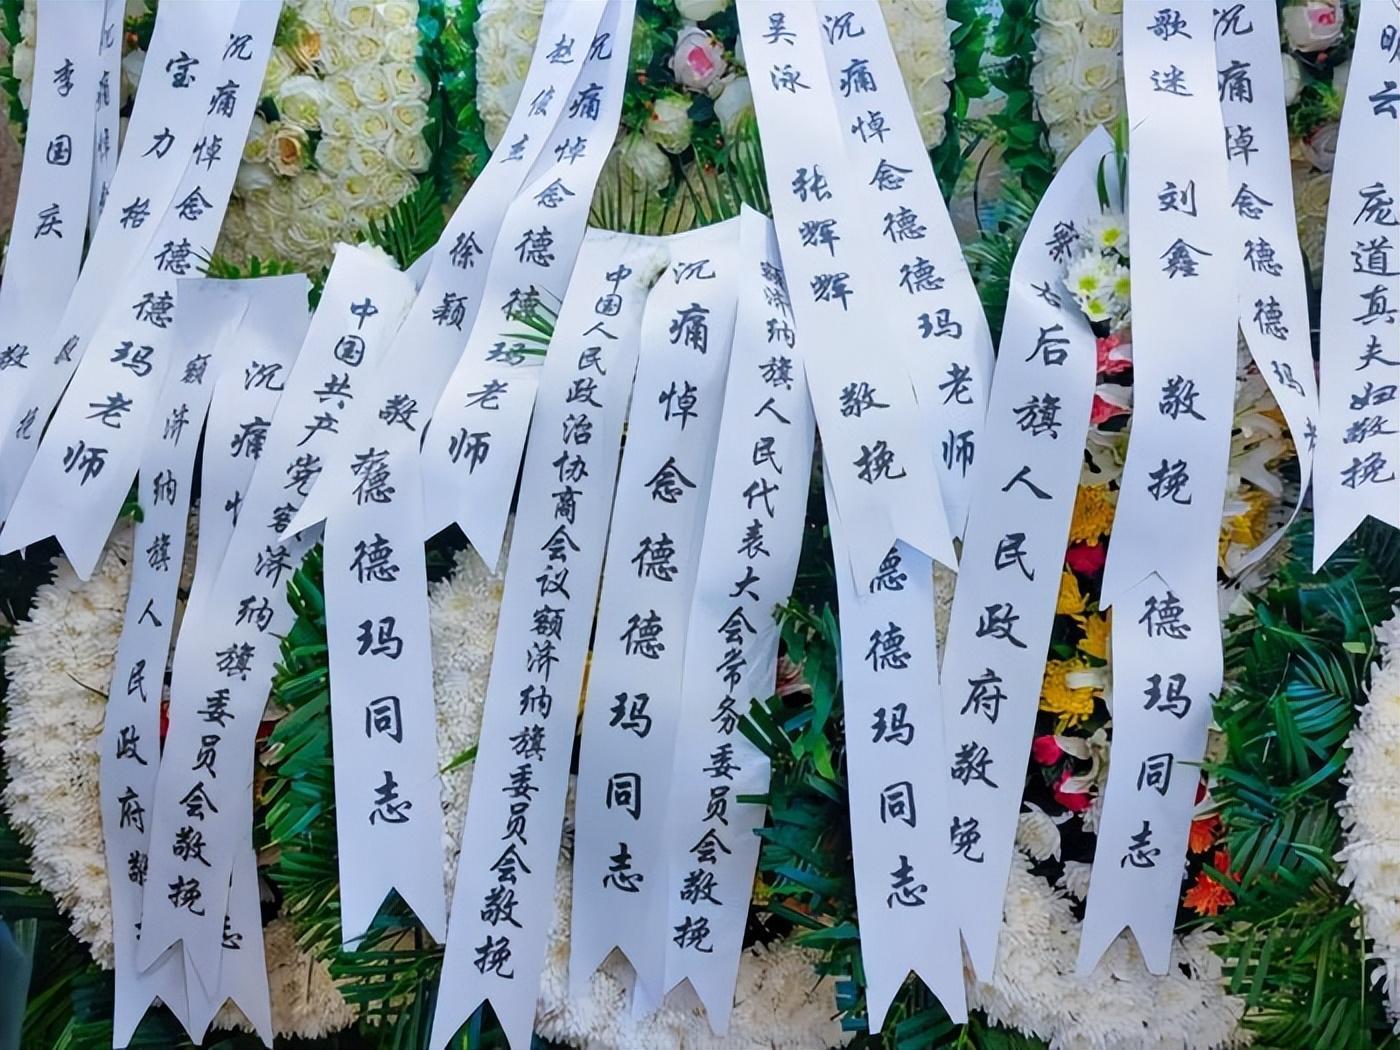 李国庆
敬
挽
宝力格
沉痛悼念德德玛老师
额济纳旗人民政府敬
沉痛
志
中国共产党额济纳旗委员会敬挽
敬
德德玛同志
赵
徐颖
沉痛悼念德德玛老师
中国人民政治协商会议额济纳旗委员会敬挽
沉痛悼念德德玛同志
额济纳旗人民代表大会常务委员会敬挽
吴泳 张辉辉 敬挽
沉痛悼念德德玛老师
念德德玛同志
右后旗人民政府敬挽
歌迷 刘鑫 敬挽
德玛同志
沉痛悼念德德玛老
云 庞道真夫妇敬挽